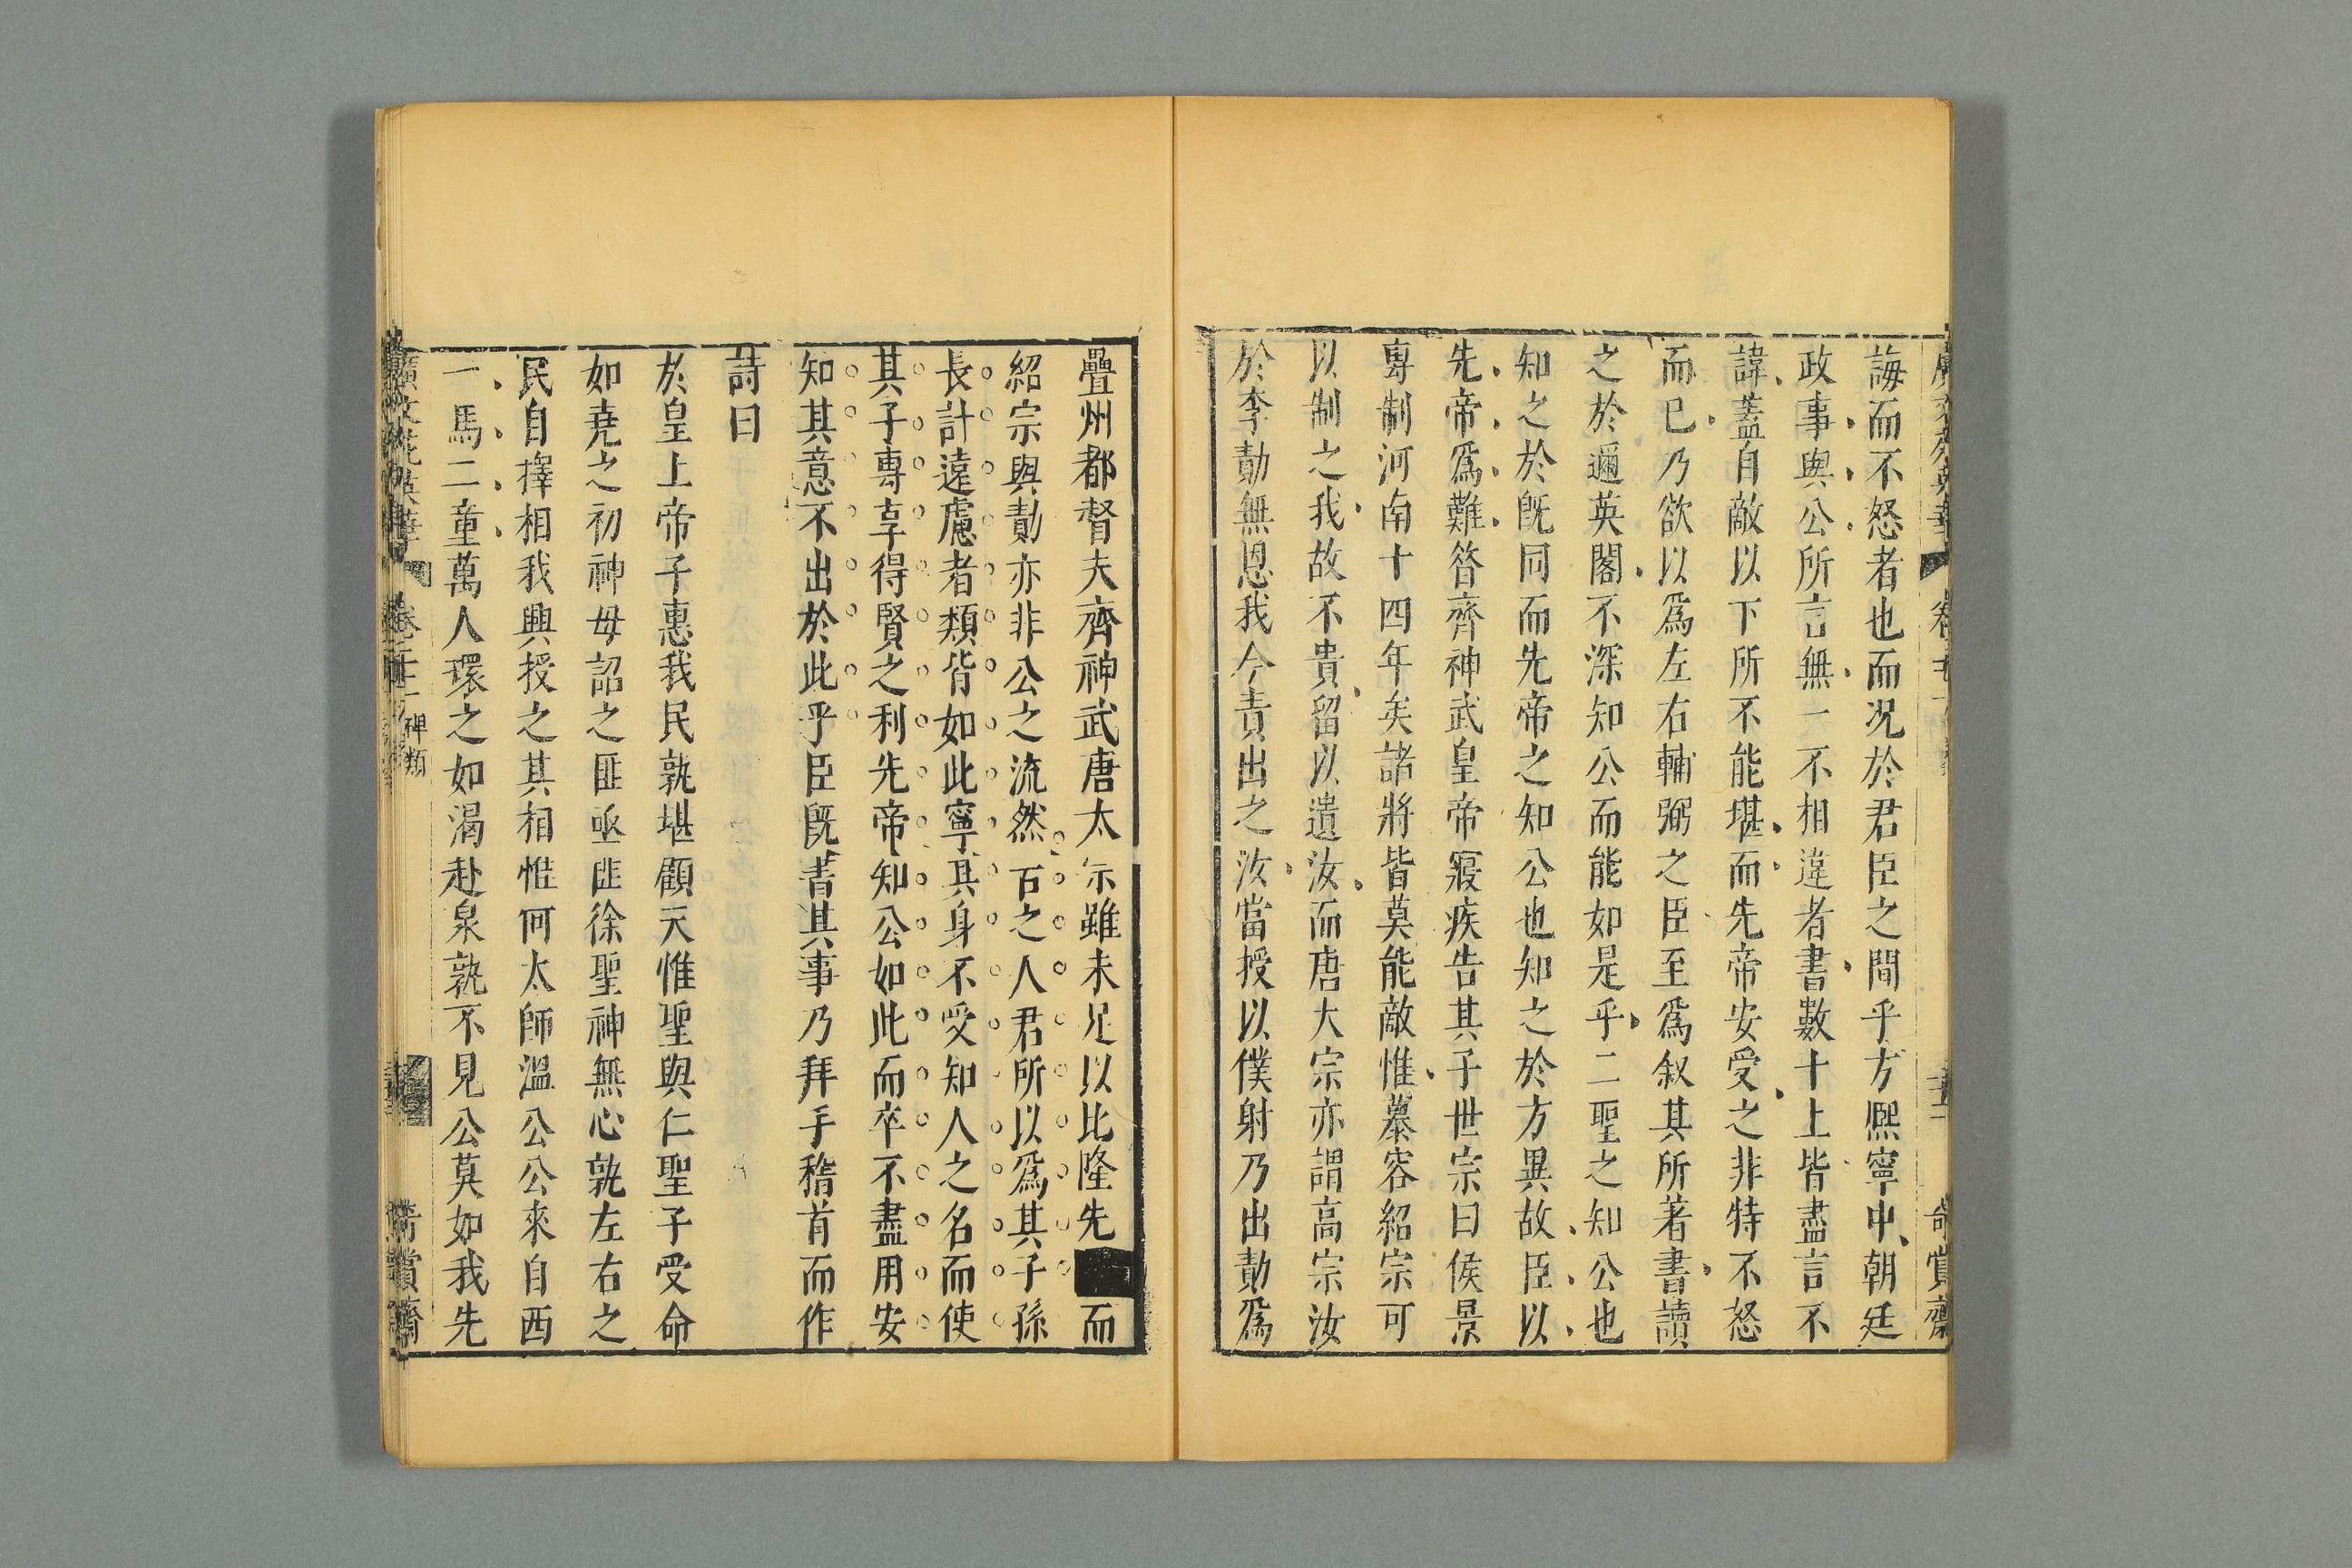 誨而不怒者也而况於君臣之間乎方熈寧中朝廷
政事與公所言無一不相違者書數十上皆盡言不
諱蓋自敵以下所不能堪而先帝安受之非特不怒
而已乃欲以爲左右輔弼之臣至爲叙其所著書讀
之於邇英閣不深知公而能如是乎二聖之知公也
知之於旣同而先帝之知公也知之於方異故臣以
先帝爲難昝齊神武皇帝寢疾告其子世宗曰侯景
專制河南十四年矣諸將皆莫能敵惟慕容紹宗可
以制之我故不貴留以遺汝而唐太宗亦謂高宗汝
於李勣無恩我今責出之汝當授以僕射乃出勣爲
疊州都督夫齊神武唐太宗雖未足以比隆先而
紹宗與勣亦非公之流然古之人君所以爲其子孫
長計遠慮者類皆如此寧其身不受知人之名而使
其子專享得賢之利先帝知公如此而卒不盡用安
知其意不出於此乎臣旣書其事乃拜手稽首而作
詩曰
於皇上帝子惠我民孰堪顧天惟聖與仁聖子受命
如堯之初神母詔之匪亟匪徐聖神無心孰左右之
民自擇相我興授之其相惟何太師溫公公來自西
一馬二童萬人環之如渴赴泉孰不見公莫如我先
廣文苑英華 碑類 奇賞齋